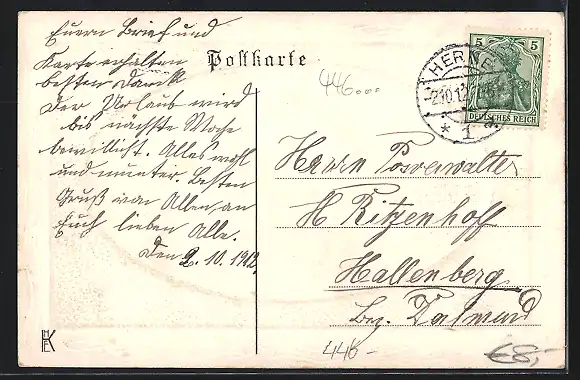 Euern Brief und
Karte erhalten
besten Dank
Der Urlaub wird
bis nächste Woche
bewilligt. Alles wohl
und munter. Besten
Gruß von Allen an
Euch lieben Alle.
Den 2. 10. 1912.
Postkarte
446...
5 5
DEUTSCHES REICH
HERNE
2.10.12
* 1
Herrn Postverwalter
H Ritzenhoff
Hallenberg
Bez. Dortmund
446-
€8,-